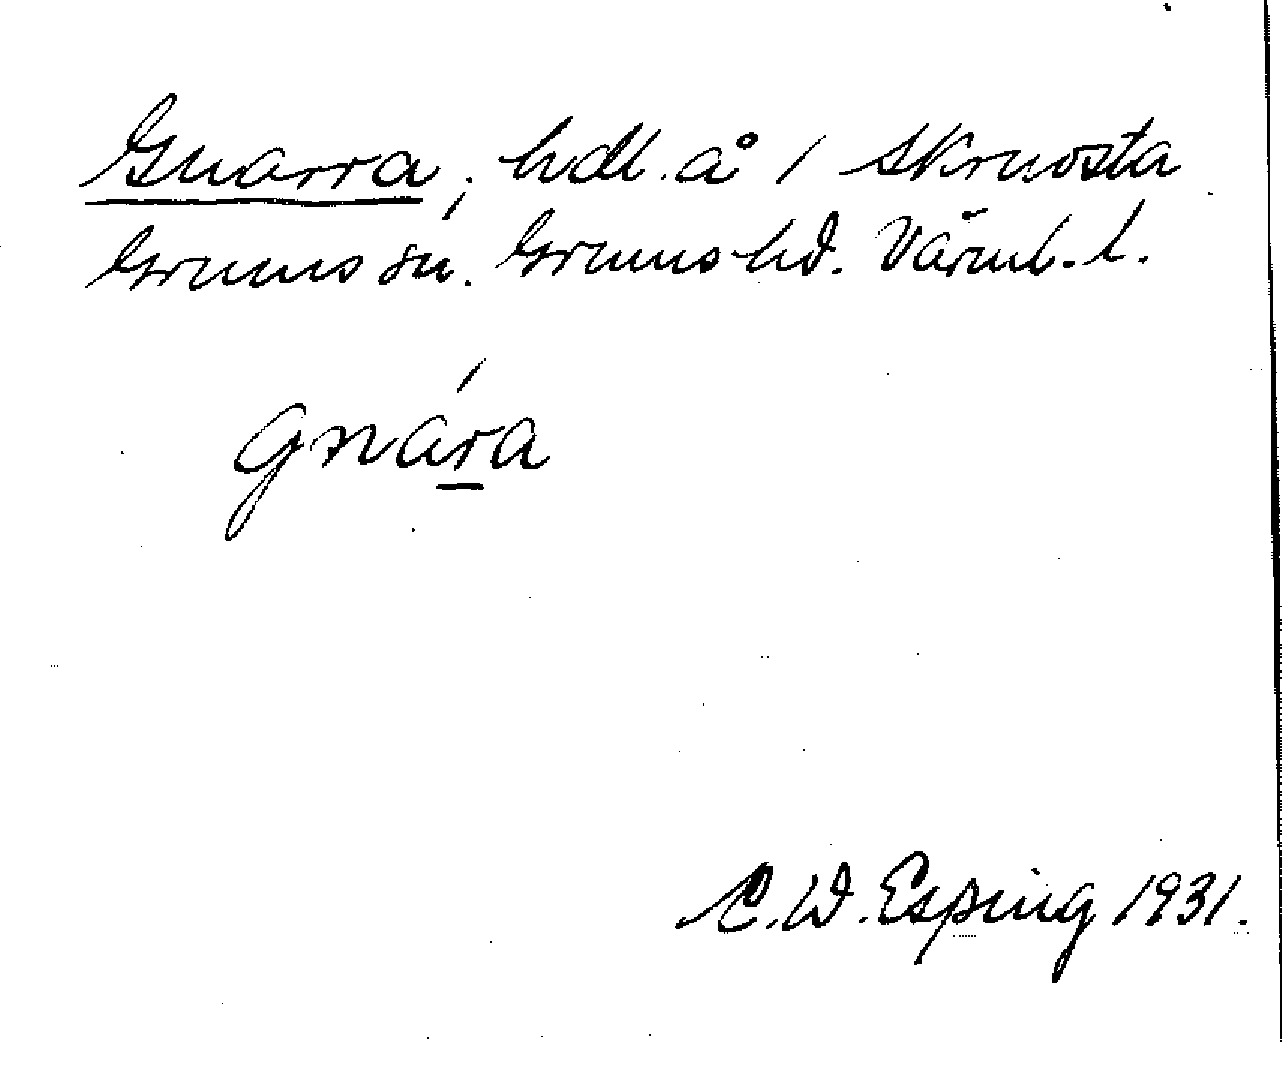 Gnarra, hdl. å i Skruosta
Grums sn. Grums hd. Värml. l.
gnára
C. W. Esping 1931.